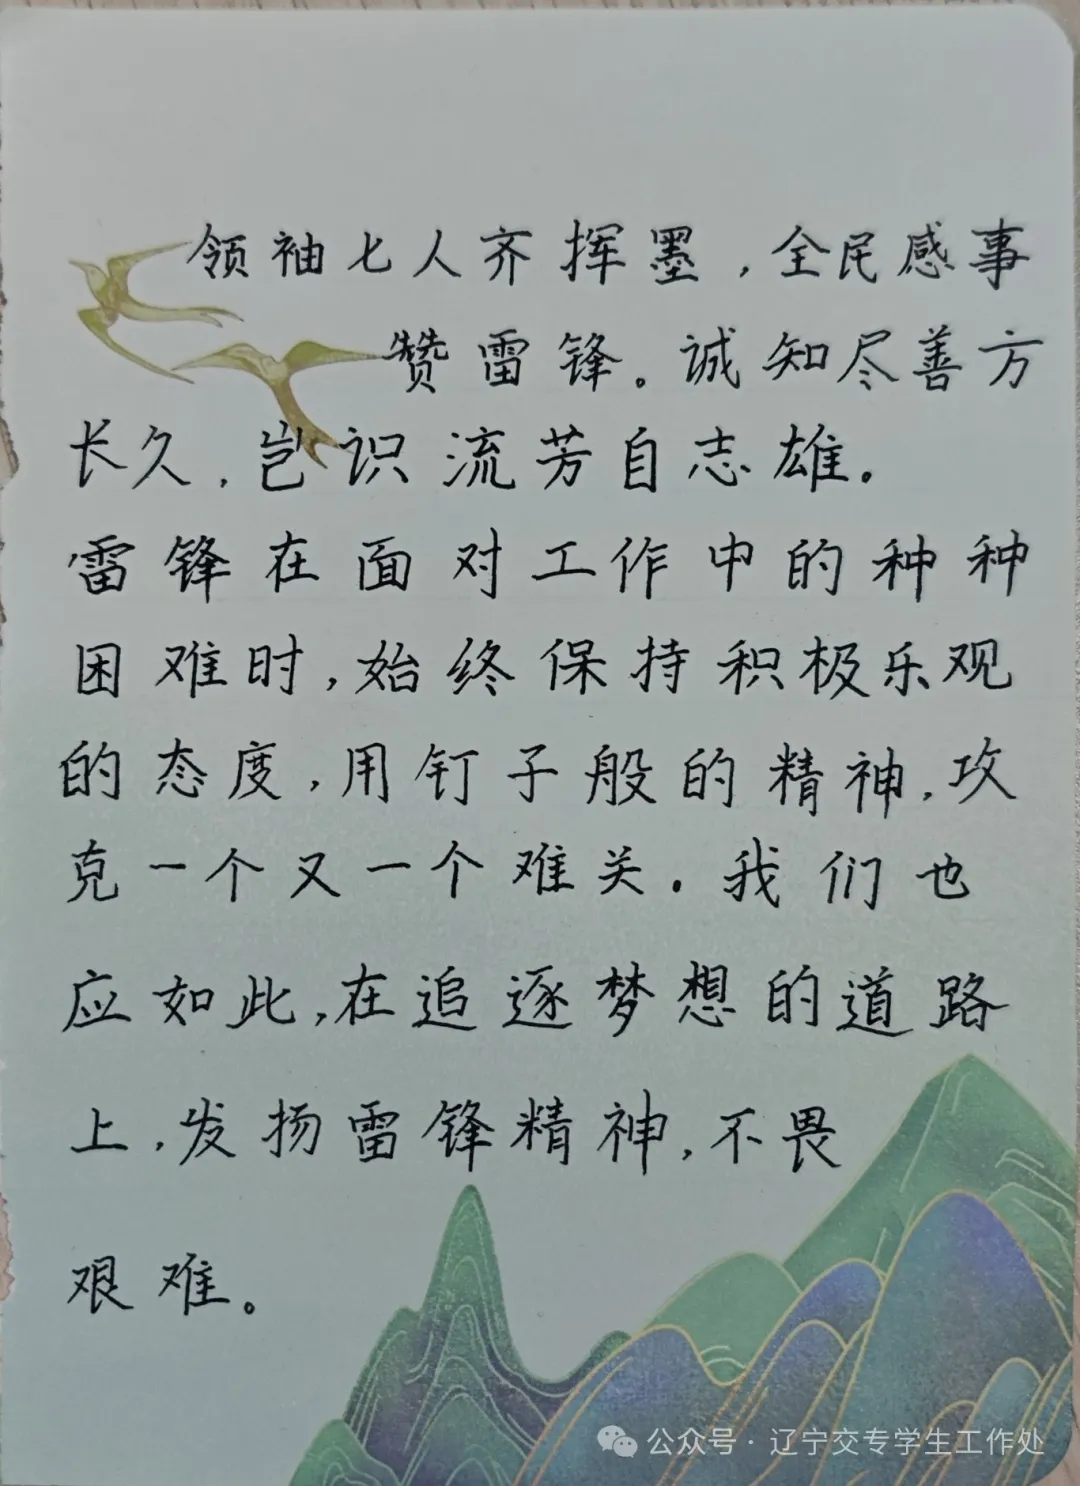 领袖七人齐挥墨，全民感事
赞雷锋。诚知尽善方
长久，岂识流芳自志雄。
雷锋在面对工作中的种种
困难时，始终保持积极乐观
的态度，用钉子般的精神，攻
克一个又一个难关。我们也
应如此，在追逐梦想的道路
上，发扬雷锋精神，不畏
艰难。
公众号·辽宁交专学生工作处